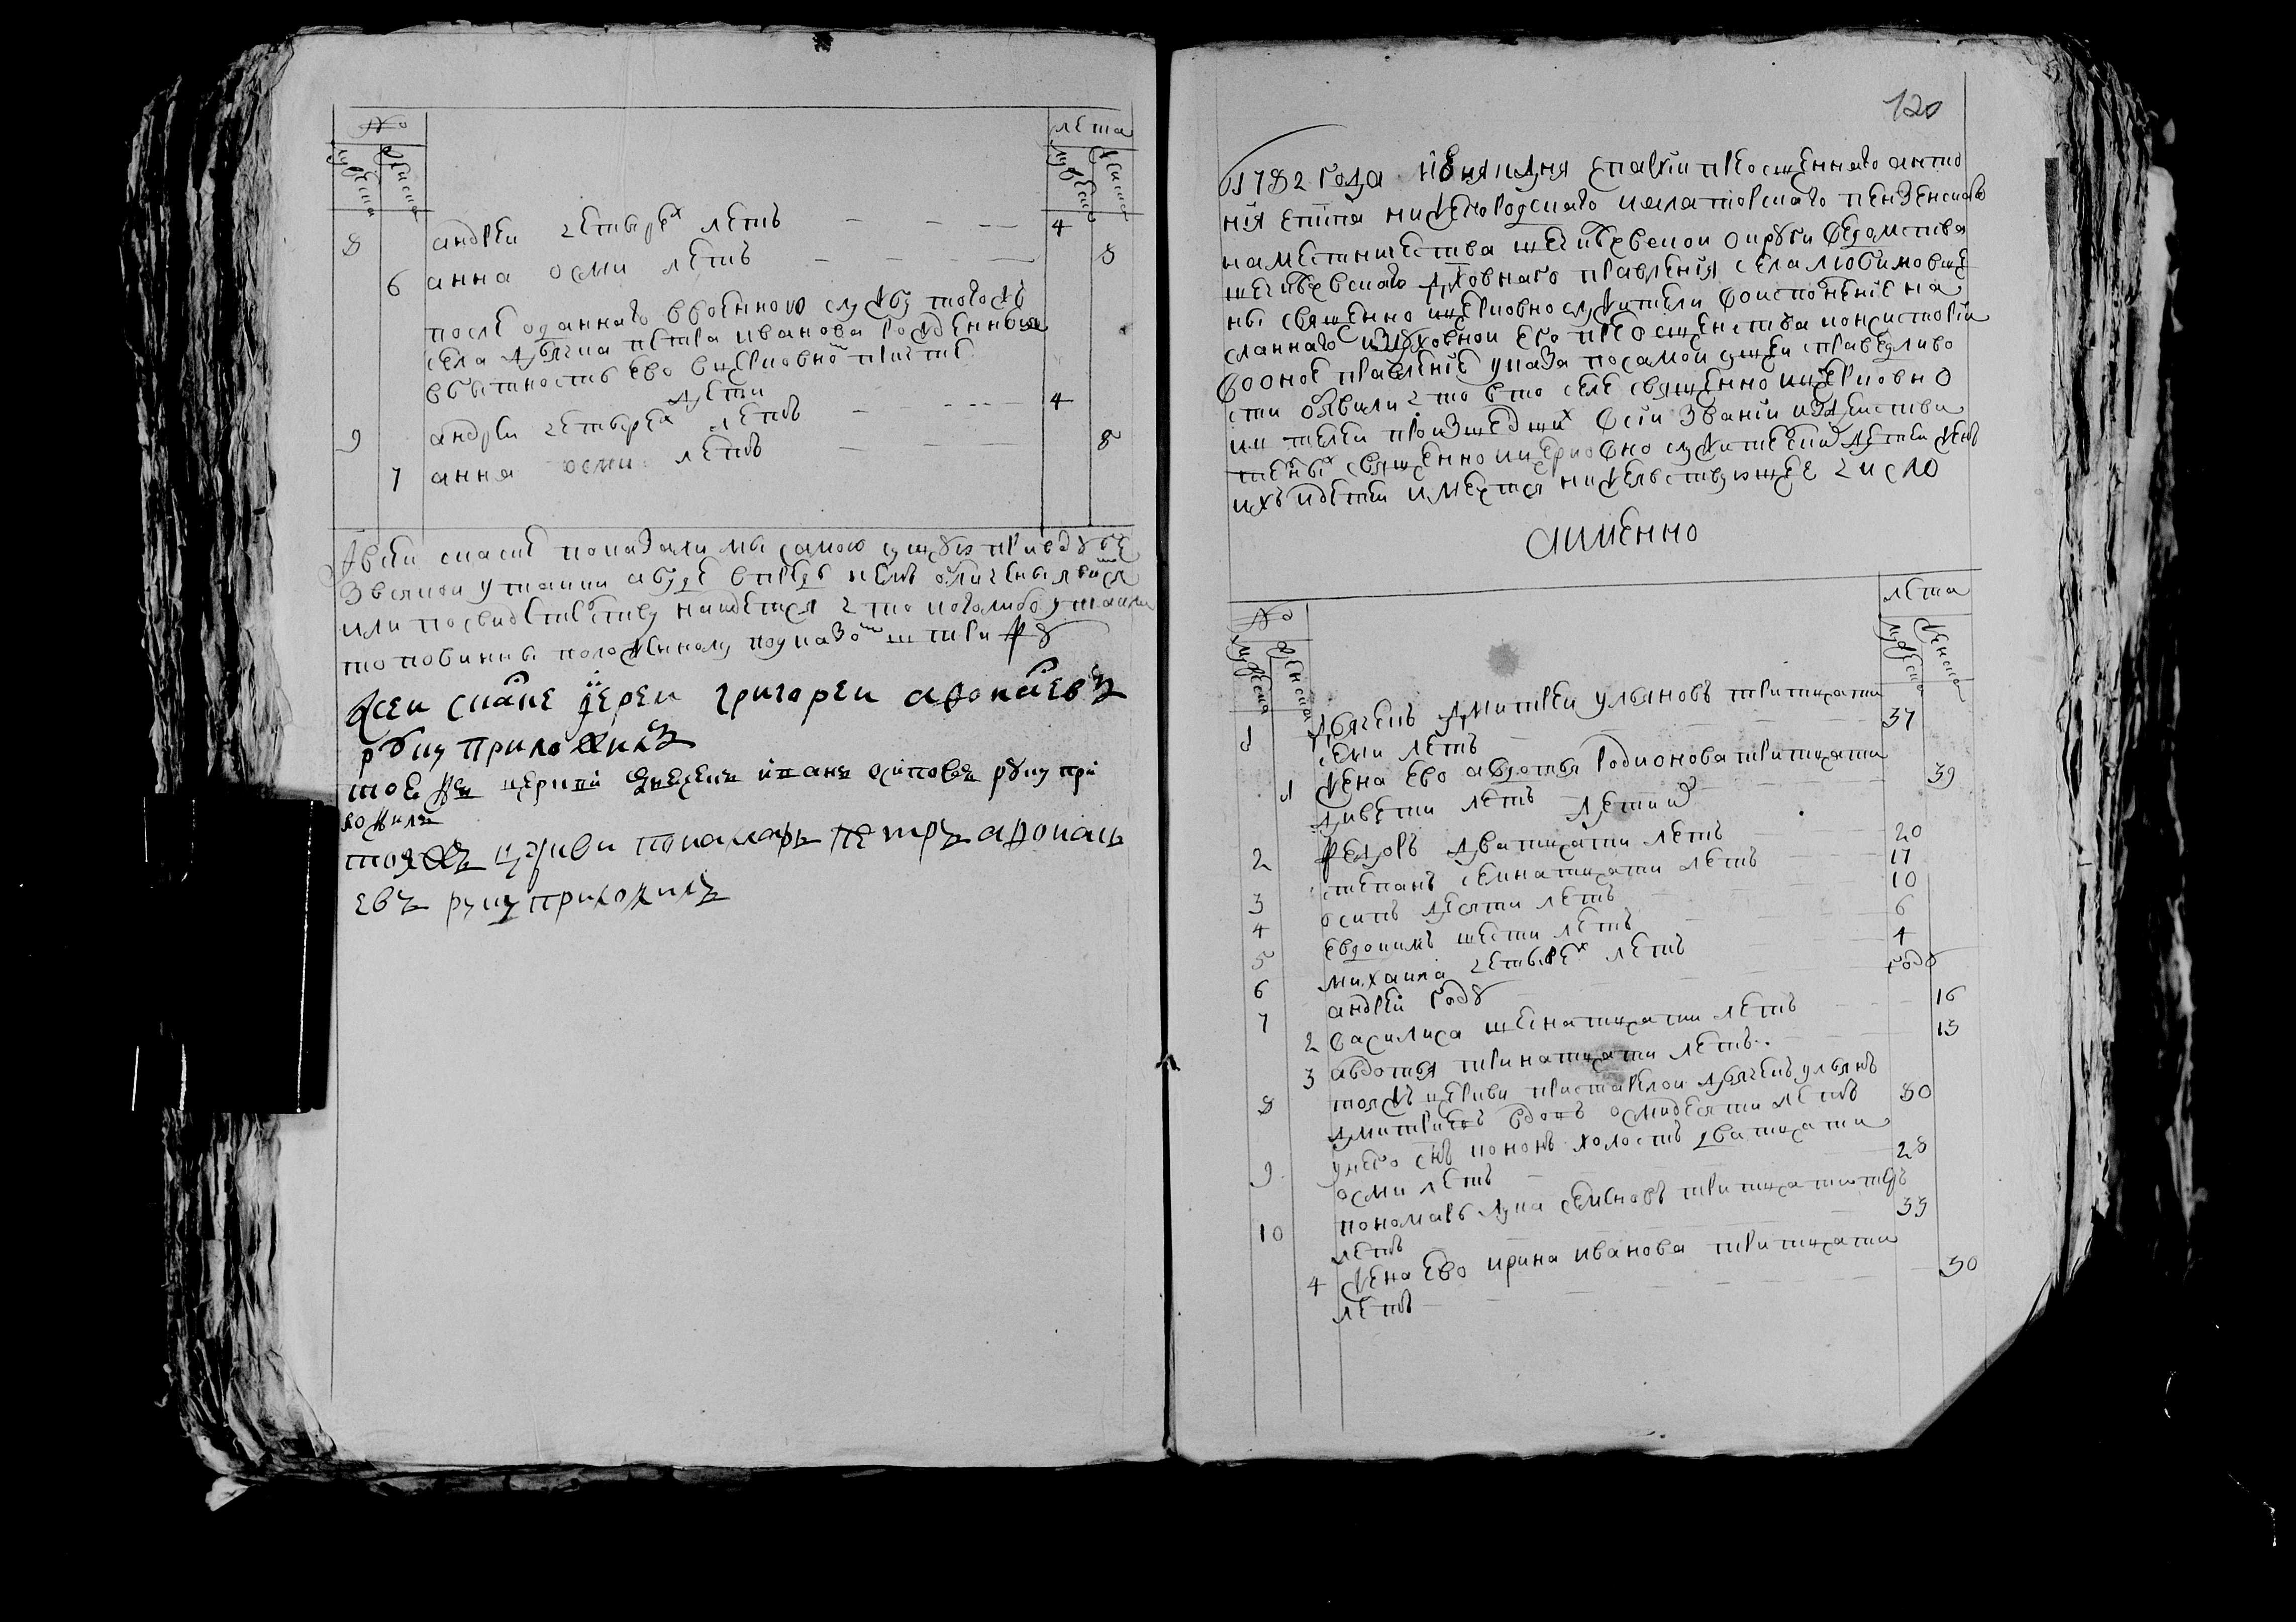 №
мужеска
женска
лета
мужеска
женска
8 андреи четырех летъ 4
6 анна осми летъ 8
после отданнаго в военною службу тогожъ
села дьячка петра иванова рожденныя
в бытность ево в церковно причте
дети
9 андреи четырех летъ 4
7 анна осми летъ 8
в сеи скаске показали мы самою сущую правду бе
з всякои утаики а буде впредь кемъ обличены явится
или по свидетелству наидется что кого либо утаили
то повинны положенному по указо штрафу
к сеи скаске иереи григореи афонасевъ
руку приложилъ
тое же церкви иванъ осиповъ руку при
ложилъ
тояжъ церкви понамарь петръ афонась
евъ руку приложилъ
120
1782 года июня дня епархии преосщеннаго анто
ния епипа нижегородскаго и алаторскаго пензенскаго
наместничества шешкеевскои округи ведомства
шешкеевскаго духовнаго правления села любимовки
ны священно и церковно служители во исполнение на
сланнаго из духовнои его преосщенства консистории
во оное правление указа по самои сущеи справедливо
сти обявили что в то селе священно и церковно
священно и церковно служителеи детеи женъ
ихъ и детеи имеется жительствующее число
а имянно
№
мужеска
женска
лета
мужеска
женска
1 дьячекъ дмитреи ульяновъ тритцати
семи летъ 37
1 жена ево авдотья родионова тритцати
девети летъ 39
у них дети
2 федоръ дватцати летъ 20
3 степанъ семнатцати летъ 17
4 осипъ десяти летъ 10
5 евдокимъ шести летъ 6
6 михаила четырех летъ 4
7 андреи году году
2 василиса шеснатцати летъ 16
3 авдотья тринатцати летъ 13
8 тояжъ церкви престарелои дьячекъ ульянъ
дмитриевъ вдовъ осмидесяти летъ 80
9 у него снъ кононъ холостъ дватцати
осми летъ 28
10 пономарь лука семеновъ тритцати трехъ
летъ 33
4 жена ево ирина иванова тритцати
летъ 30